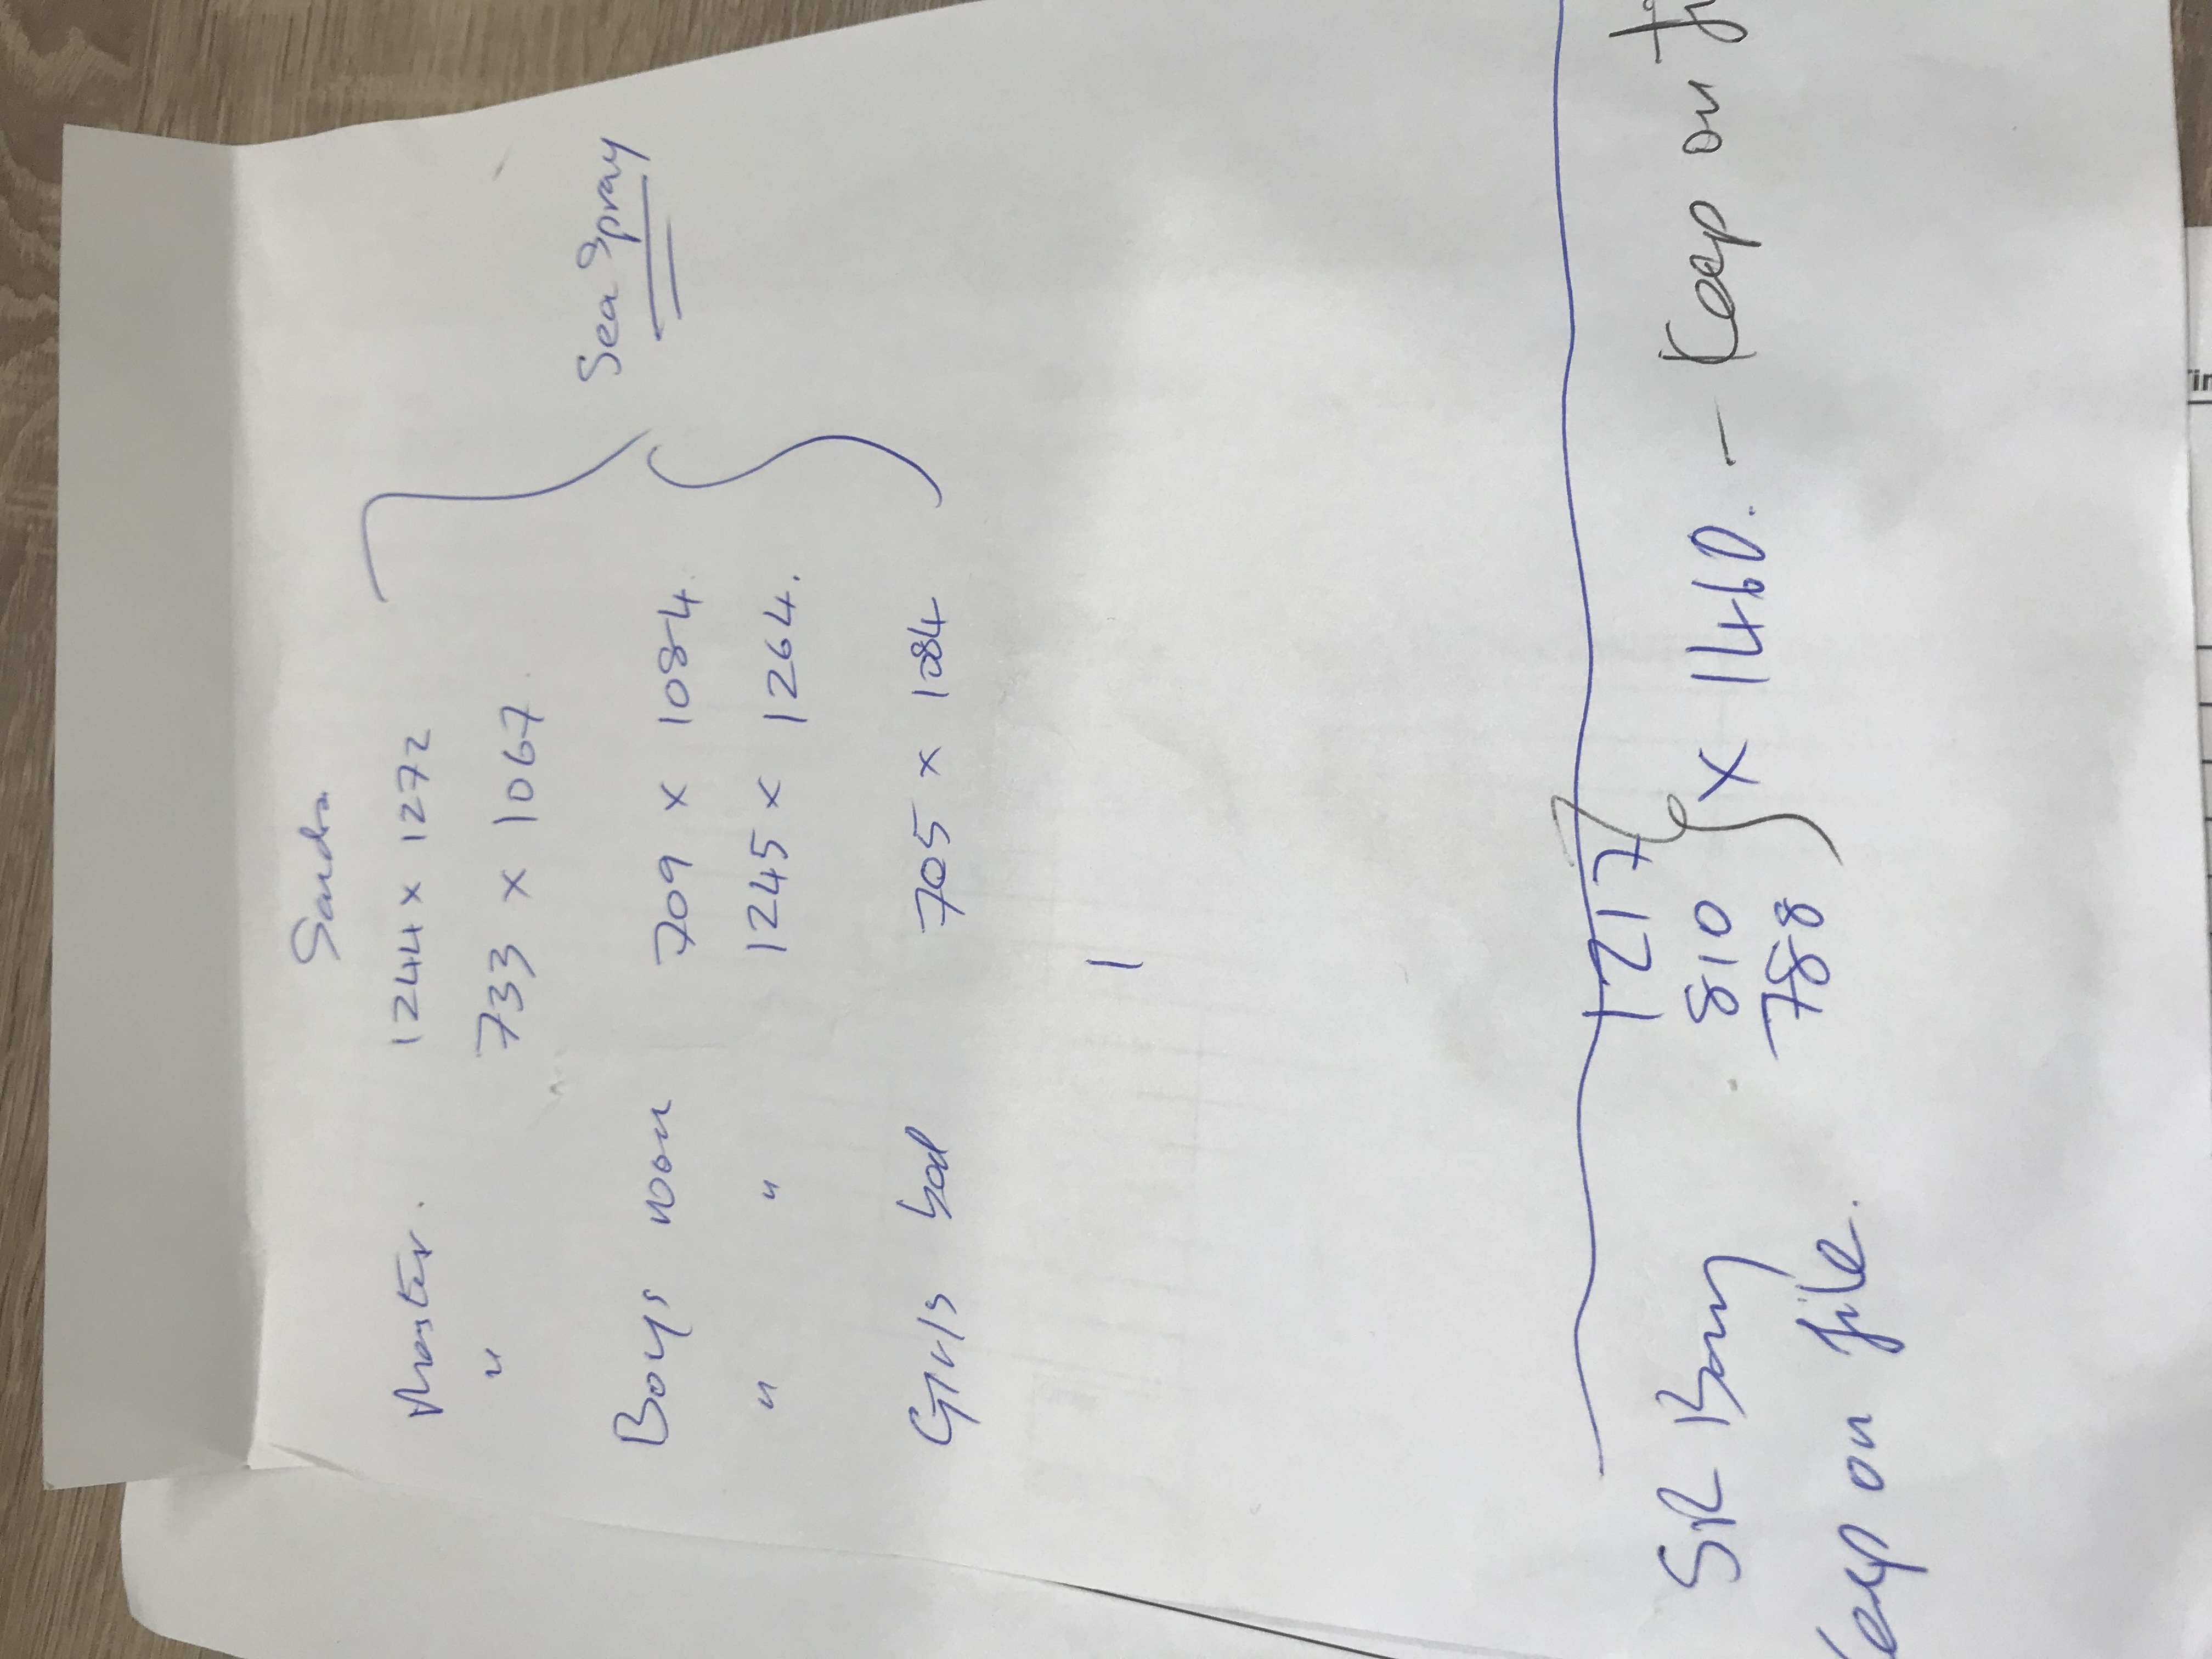 Sandra
Master. 1244 x 1272
" 733 x 1067.
Sea Spray
Boys room 709 x 1084.
" " 1245 x 1264.
Girls bed 705 x 1084
1
1217
SR Bay 810 x 1460. - Keep on fi
788
Keep on file.